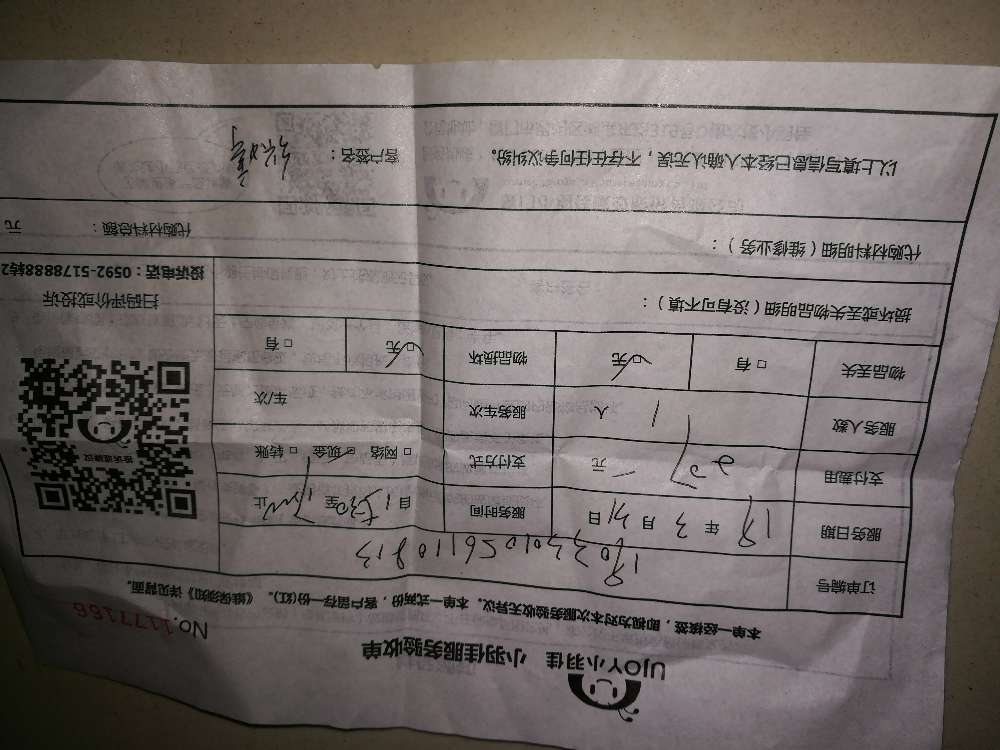 UJOY小羽佳 小羽佳服务验收单
No.1177166
本单一经接签，即视为对本次服务验收无异议。本单一式两份，客户留存一份(红)。《维保须知》详见背面。
订单编号
服务日期 18 年 3 月 31 日 服务时间 自 至 止
支付费用 元 支付方式 □ 网络 □ 现金 □ 转账
服务人数 1 人 服务车次 车/次
物品丢失 □ 有 □ 无 物品损坏 □ 无 □ 有
投诉或建议
扫码评价或投诉
投诉电话：0592-5178888转2
损坏或丢失物品明细（没有可不填）：
代购材料明细（维修业务）： 代购材料总额： 元
以上填写信息已经本人确认无误，不存在任何争议纠纷。 客户签名：